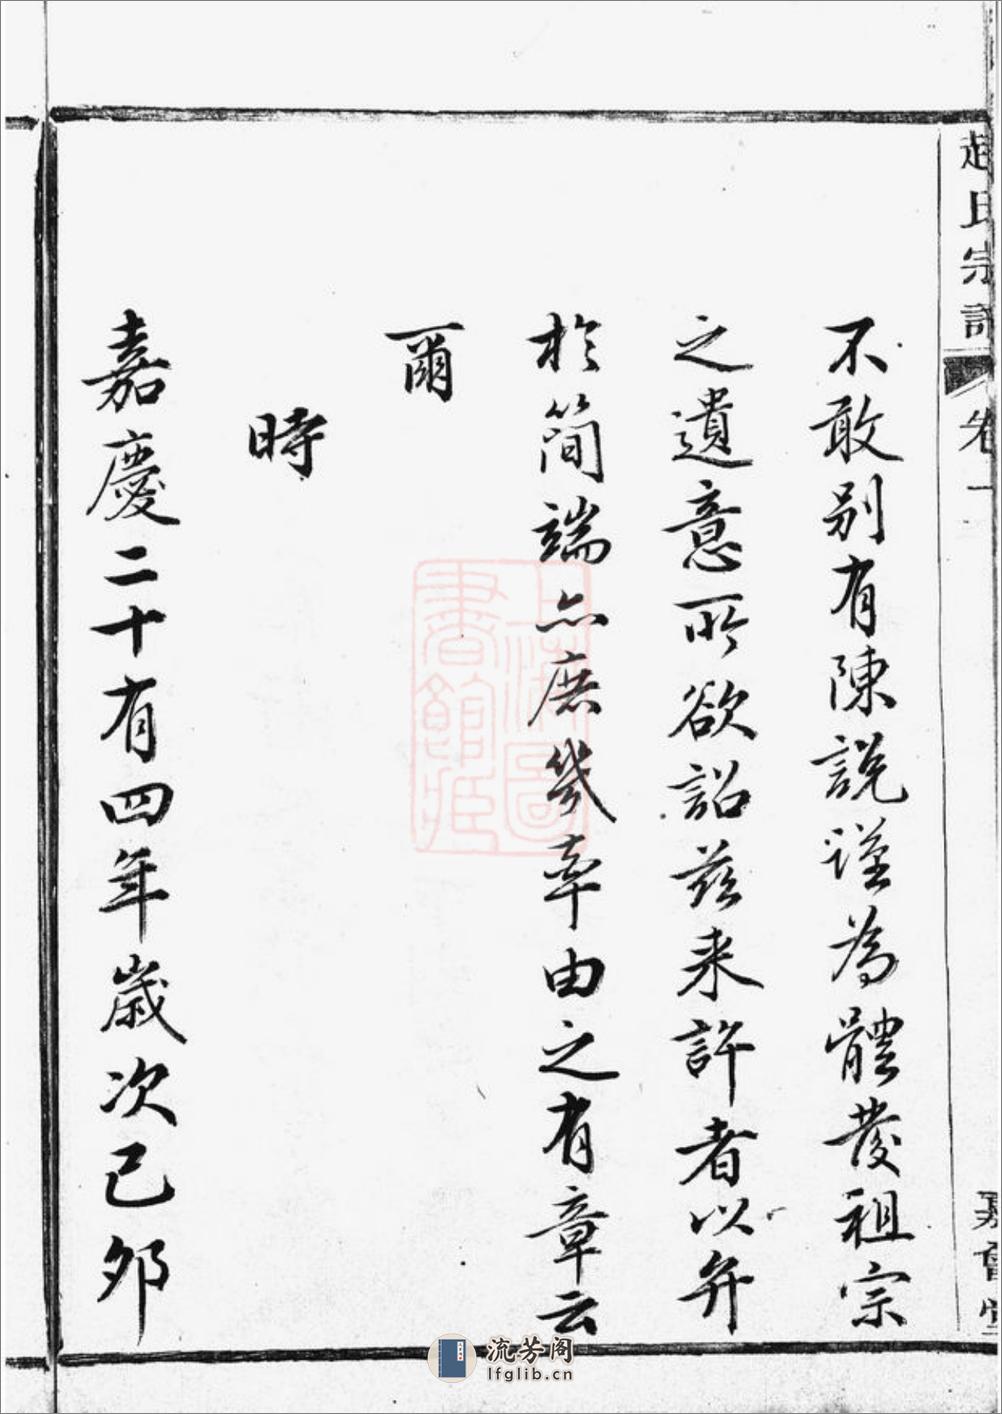 趙氏宗譜
卷一
不敢別有陳說謹為體發祖宗
之遺意所欲詔茲来許者以弁
於簡端亦庶幾率由之有章云
爾
時
嘉慶二十有四年歲次己夘
上海圖書館藏
流芳阁
lfglib.cn